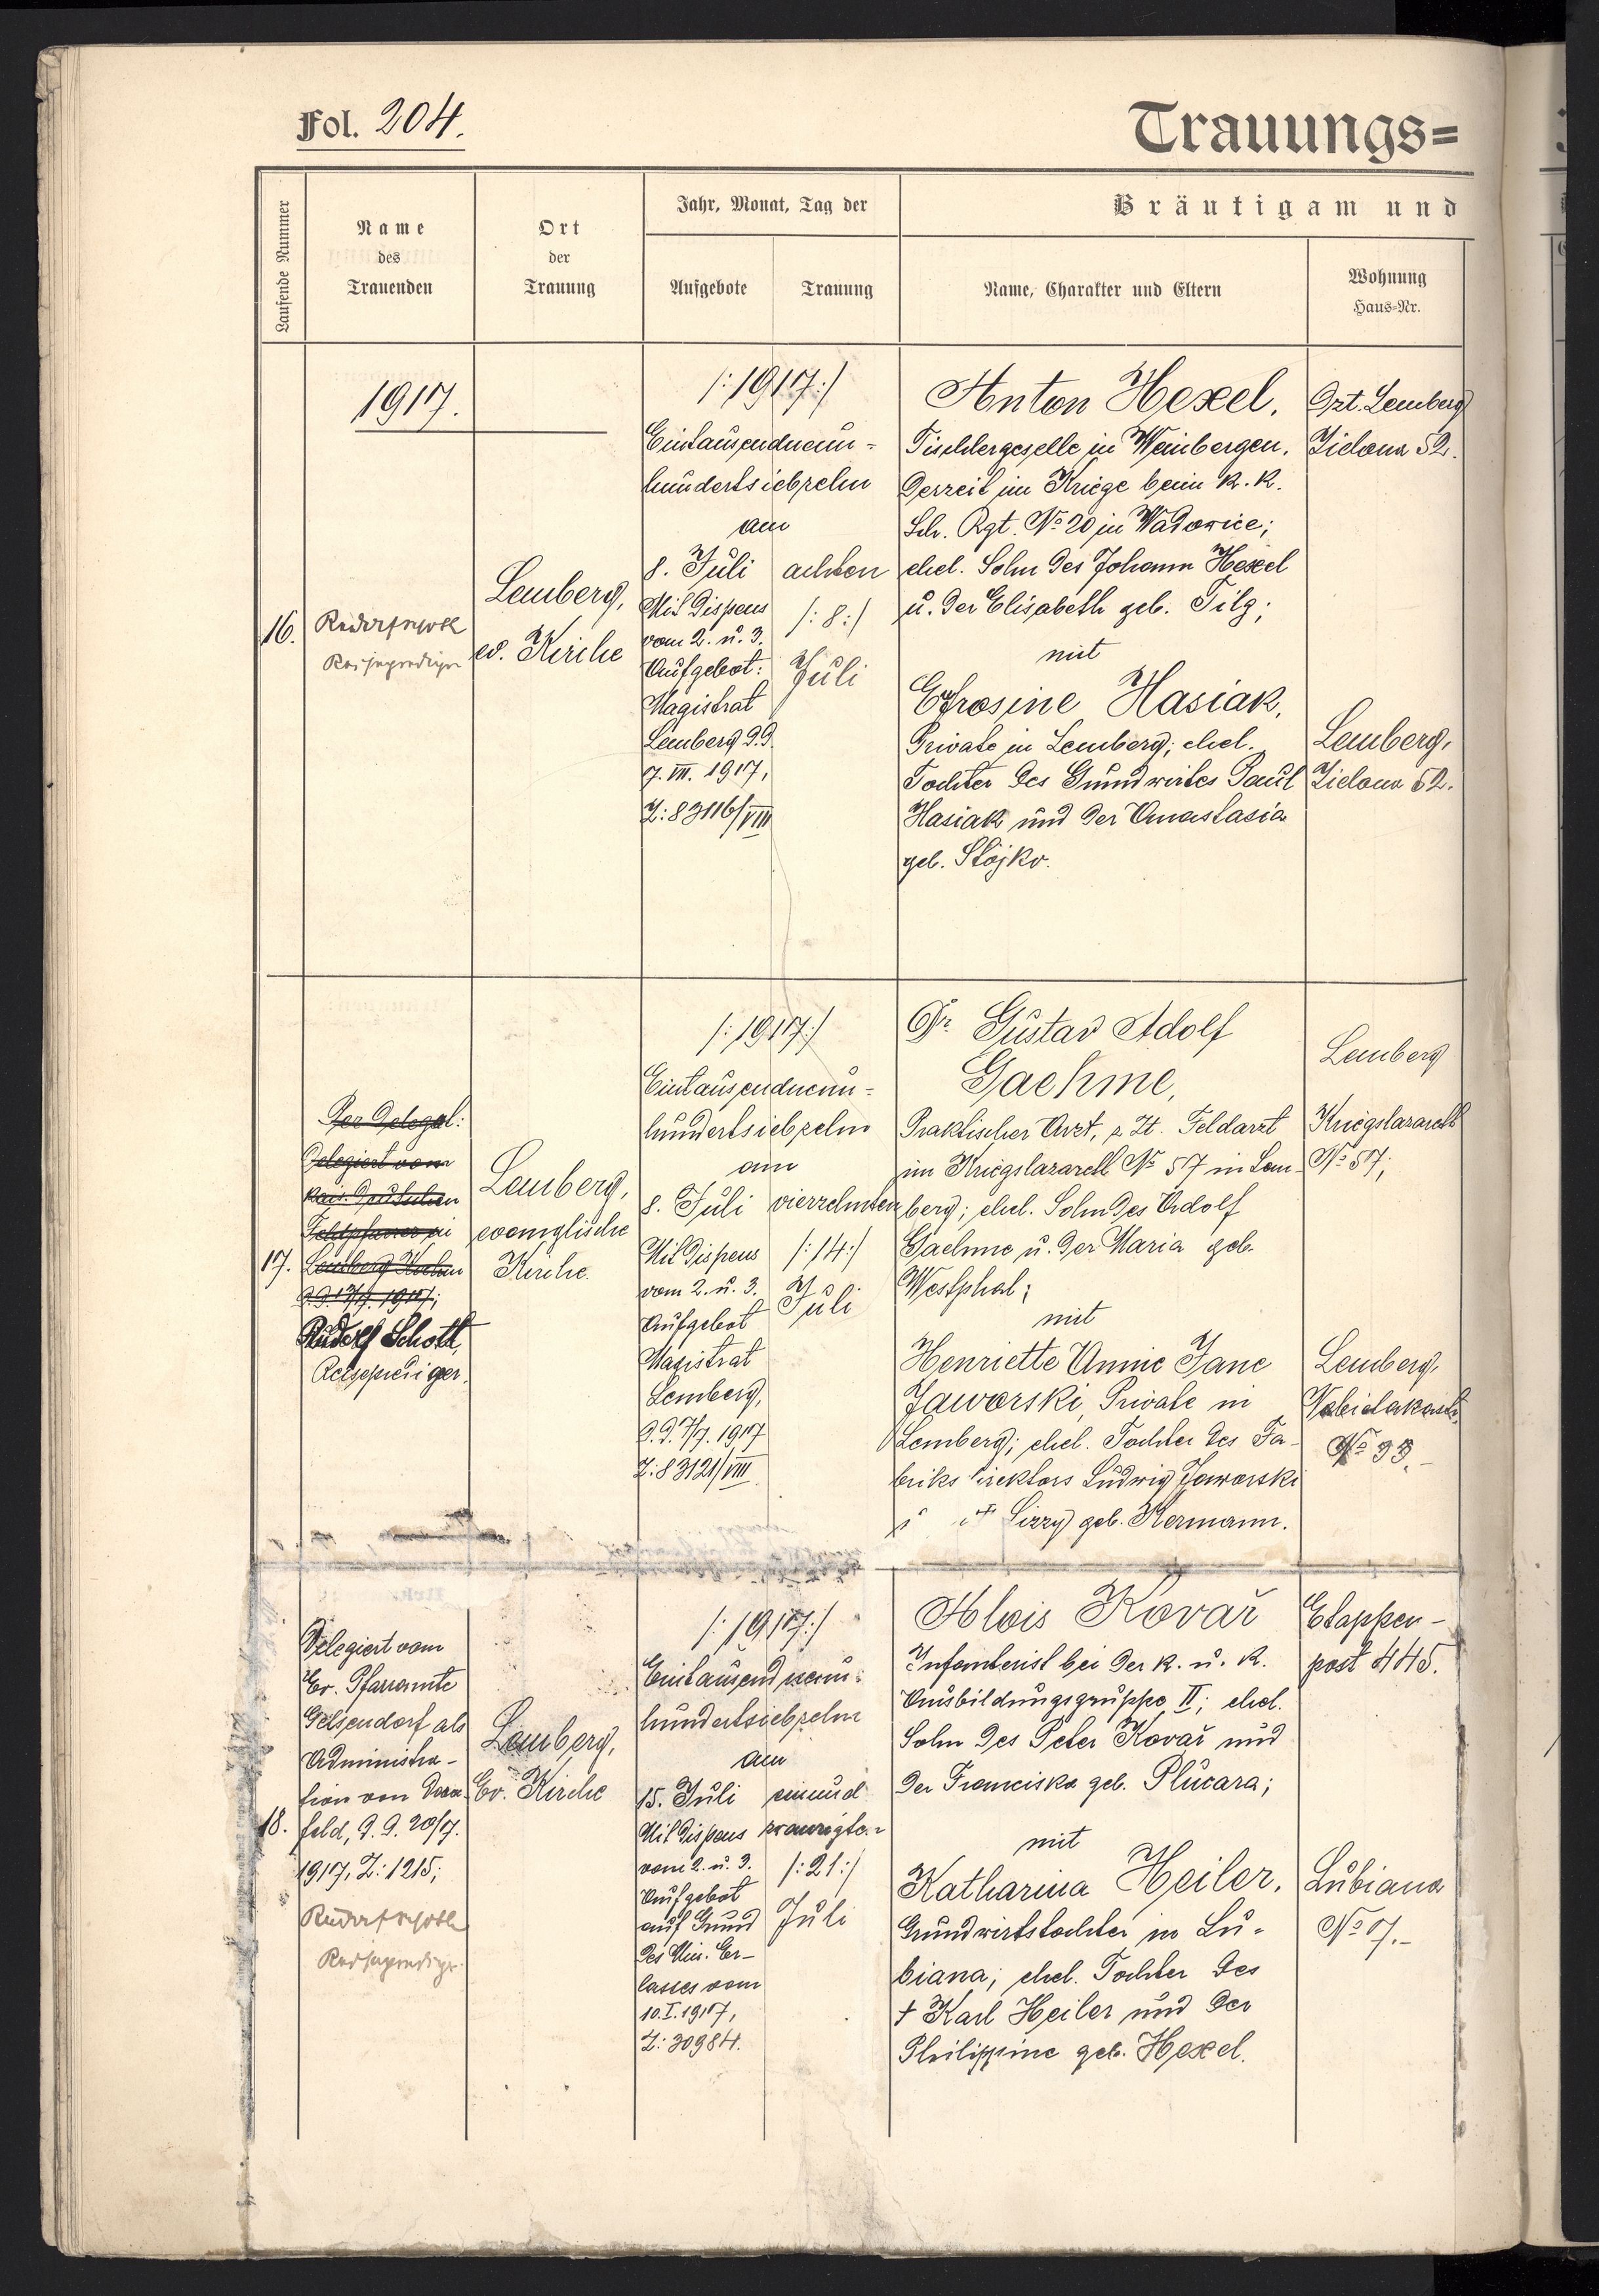 Fol. 204.
Trauungs=
Laufende Nummer
Name
des
Trauenden
Ort
der
Trauung
Jahr, Monat, Tag der
Aufgebote
Trauung
Bräutigam und
Name, Charakter und Eltern
Wohnung
Haus=Nr.
1917.
16.
Rudolf Schott
Reiseprediger
Lemberg,
ev. Kirche
/:1917:/
Eintausendneun=
hundertsiebzehn
am
8. Juli
Mit Dispens
vom 2. u. 3.
Aufgebot:
Magistrat
Lemberg d.d.
7. VII. 1917,
Z: 83116/VIII
achten
/:8:/
Juli
Anton Hexel,
Tischlergeselle in Weinbergen,
derzeit im Kriege beim k. k.
Sch. Rgt. No 20 in Wadowice;
ehel. Sohn des Johann Hexel
u. der Elisabeth geb. Filg;
mit
Efrosine Hasiak,
Private in Lemberg; ehel.
Tochter des Grundwirtes Paul
Hasiak und der Anastasia
geb. Stojko.
Dzt. Lemberg
Zielona 52.
Lemberg,
Zielona 52.
17.
Per Delegat:
Delegiert vom
Feldpfarrer in
Lemberg
Rudolf Schott,
Reiseprediger.
Lemberg,
evanglische
Kirche.
/:1917:/
Eintausendneun=
hundertsiebzehn
am
8. Juli
Mit Dispens
vom 2. u. 3.
Aufgebot
Magistrat
Lemberg,
d.d. 7/7. 1917
Z: 83121/VIII
vierzehnten
/:14:/
Juli
Dr. Gustav Adolf
Gaehme,
Praktischer Arzt, z. Zt. Feldarzt
im Kriegslazarett No 57 in Lem-
berg; ehel. Sohn des Adolf
Gaehme u. der Maria geb.
Westphal;
mit
Henriette Annie Jane
Jaworski, Private in
Lemberg; ehel. Tochter des Fa-
briksdirektors Ludwig Jaworski
Lizzy geb. Hermann.
Lemberg
Kriegslazarett
No 57;
Lemberg,
No 33.-
18.
Delegiert vom
Ev. Pfarramte
Gelsendorf als
Administra-
tion von Dorn-
feld, d.d. 20/7.
1917, Z: 1215;
Rudolf Schott
Reiseprediger
Lemberg,
Ev. Kirche
/:1917:/
Eintausendneun=
hundertsiebzehn
am
15. Juli
Mit Dispens
vom 2. u. 3.
Aufgebot
auf Grund
des Min. Er-
lasses vom
10.I.1917,
Z: 30984.
einund
zwanzigsten
/:21:/
Juli
Alois Kovař
Infanterist bei der k. u. k.
Ausbildungsgruppe II; ehel.
Sohn des Peter Kovař und
der Franciska geb. Plucara;
mit
Katharina Heiler,
Grundwirtstochter in Lu=
biana; ehel. Tochter des
† Karl Heiler und der
Philippine geb. Hexel.
Etappen-
post 445.
Lubiana
No 7.-